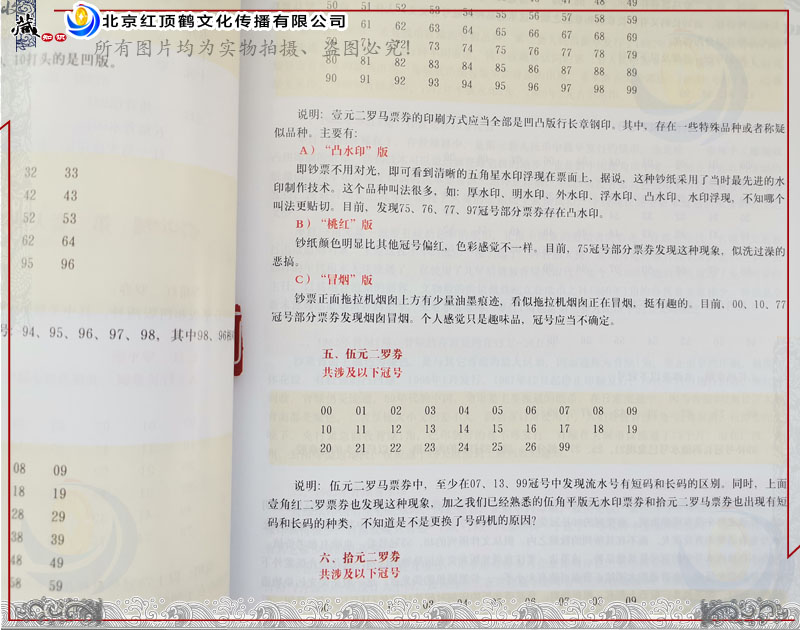 藏
北京红顶鹤文化传播有限公司
所有图片均为实物拍摄、盗图必究!
10打头的是凹版。
32 33
42 43
52 53
62 64
95 96
94、95、96、97、98，其中98、96
08 09
18 19
28 29
38 39
48 49
58 59
50 51 52 53 54 55 56 57 58 59
72 73 74 75 76 77 78 79
80 81 82 83 84 85 86 87 88 89
90 91 92 93 94 95 96 97 98 99
说明：壹元二罗马票券的印刷方式应当全部是凹凸版行长章钢印。其中，存在一些特殊品种或者称疑
似品种。主要有：
A）“凸水印”版
即钞票不用对光，即可看到清晰的五角星水印浮现在票面上，据说，这种钞纸采用了当时最先进的水
印制作技术。这个品种叫法很多，如：厚水印、明水印、外水印、浮水印、凸水印、水印浮现，不知哪个
叫法更贴切。目前，发现75、76、77、97冠号部分票券存在凸水印。
B）“桃红”版
钞纸颜色明显比其他冠号偏红，色彩感觉不一样。目前，75冠号部分票券发现这种现象，似洗过澡的
恶搞。
C）“冒烟”版
钞票正面拖拉机烟囱上方有少量油墨痕迹，看似拖拉机烟囱正在冒烟，挺有趣的。目前，00、10、77
冠号部分票券发现烟囱冒烟。个人感觉只是趣味品，冠号应当不确定。
五、伍元二罗券
共涉及以下冠号
00 01 02 03 04 05 06 07 08 09
10 11 12 13 14 15 16 17 18 19
20 21 22 23 24 25 26 99
说明：伍元二罗马票券中，至少在07、13、99冠号中发现流水号有短码和长码的区别。同时，上面
壹角红二罗票券也发现这种现象，加之我们已经熟悉的伍角平版无水印票券和拾元二罗马票券也出现有短
码和长码的种类，不知道是不是更换了号码机的原因？
六、拾元二罗券
共涉及以下冠号
03 04 05 06 07 08 09